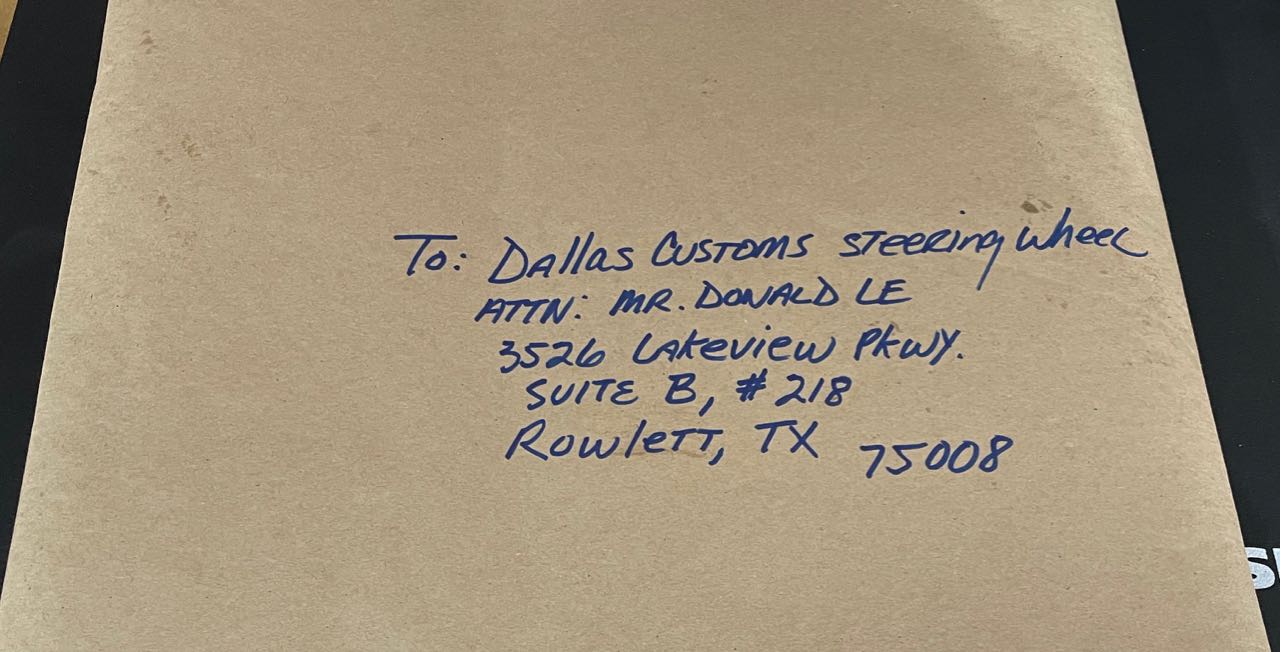 To: Dallas Customs steering wheel
ATTN: MR. DONALD LE
3526 Lakeview Pkwy.
SUITE B, #218
Rowlett, TX 75008